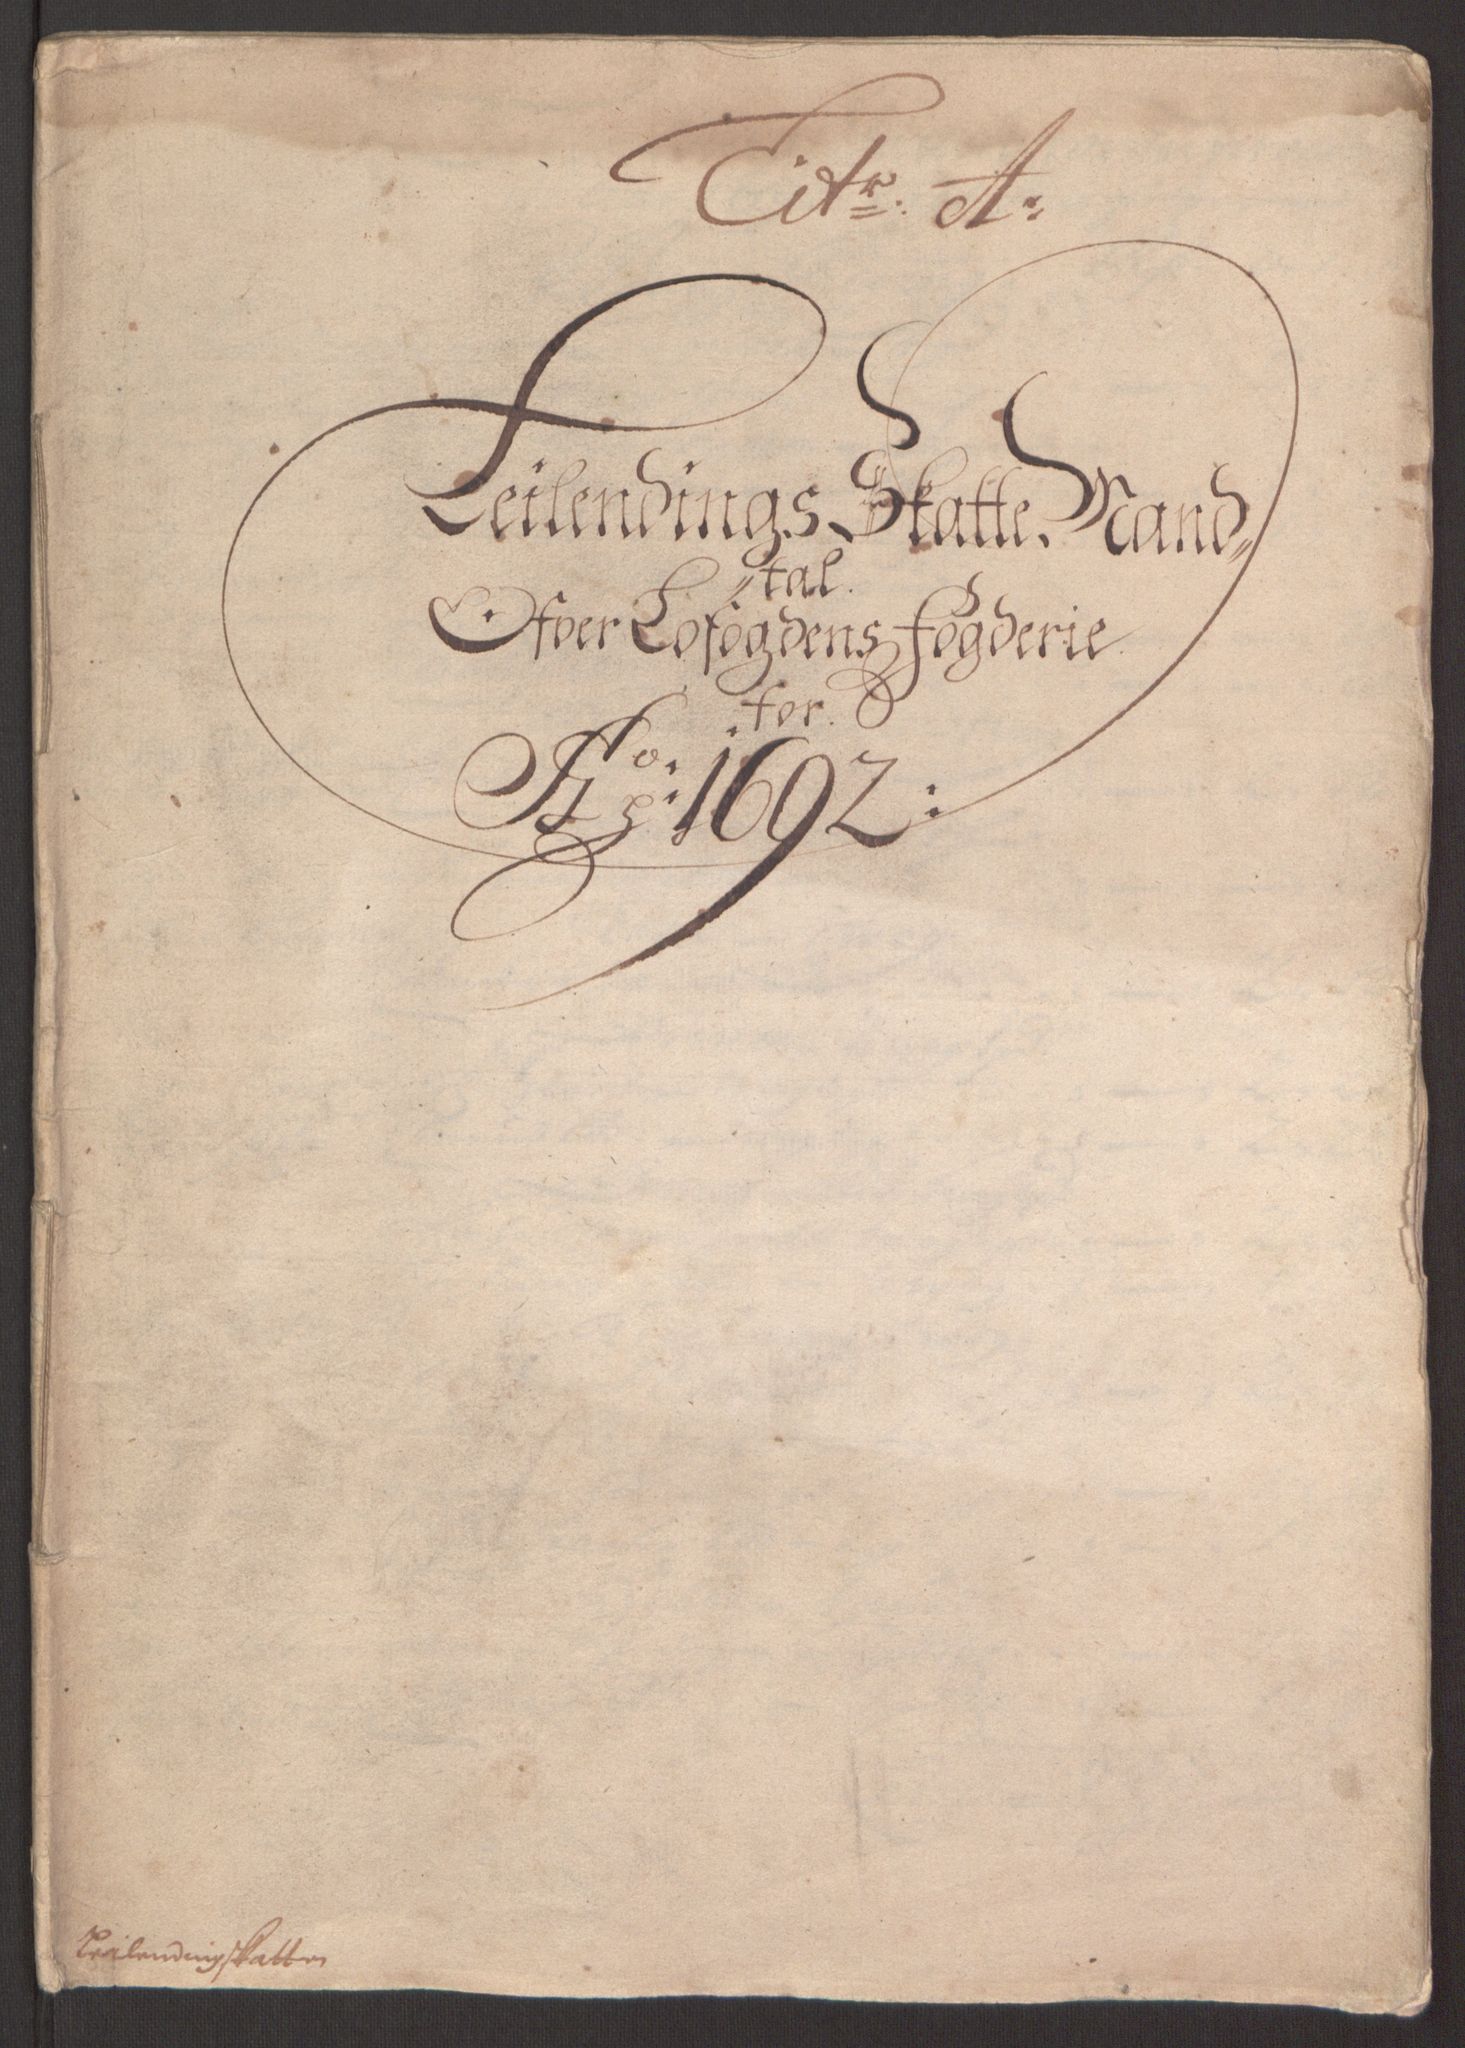 Litr. A.
Leilendings Skatte Mand-
-tal.
Ofver Lofogdens fogderie
for.
Ao: 1692:
Leilendingskatten